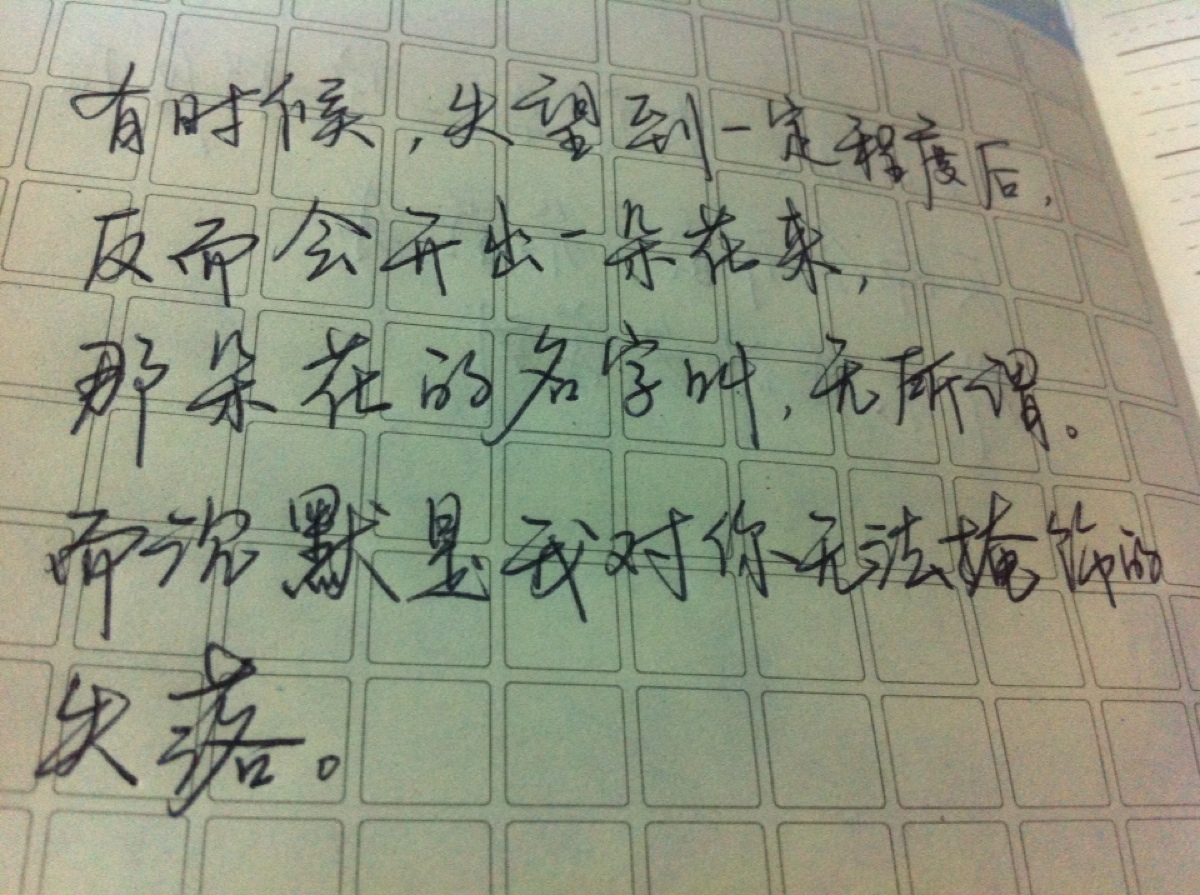 有时候，失望到一定程度后，
反而会开出一朵花来，
那朵花的名字叫，无所谓。
而沉默是我对你无法掩饰的
失落。